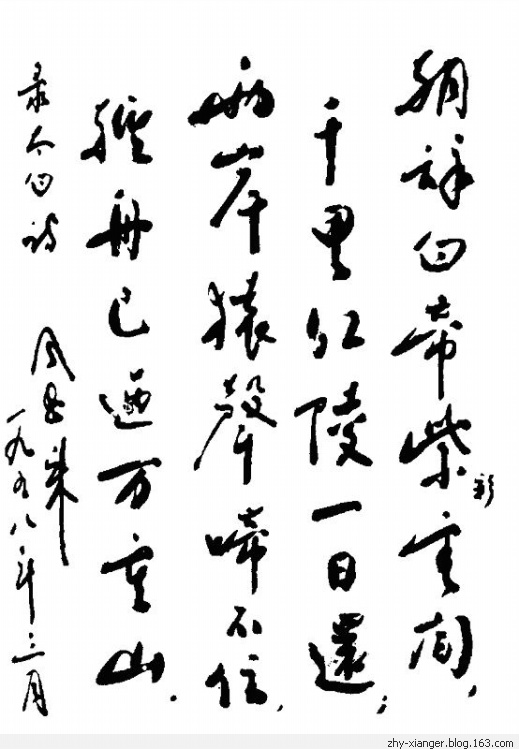 朝辞白帝紫雲间，
彩
千里江陵一日還；
兩岸猿聲啼不住，
輕舟已過万重山．
录太白诗
周恩来
一九五八年三月
zhy-xianger.blog.163.com